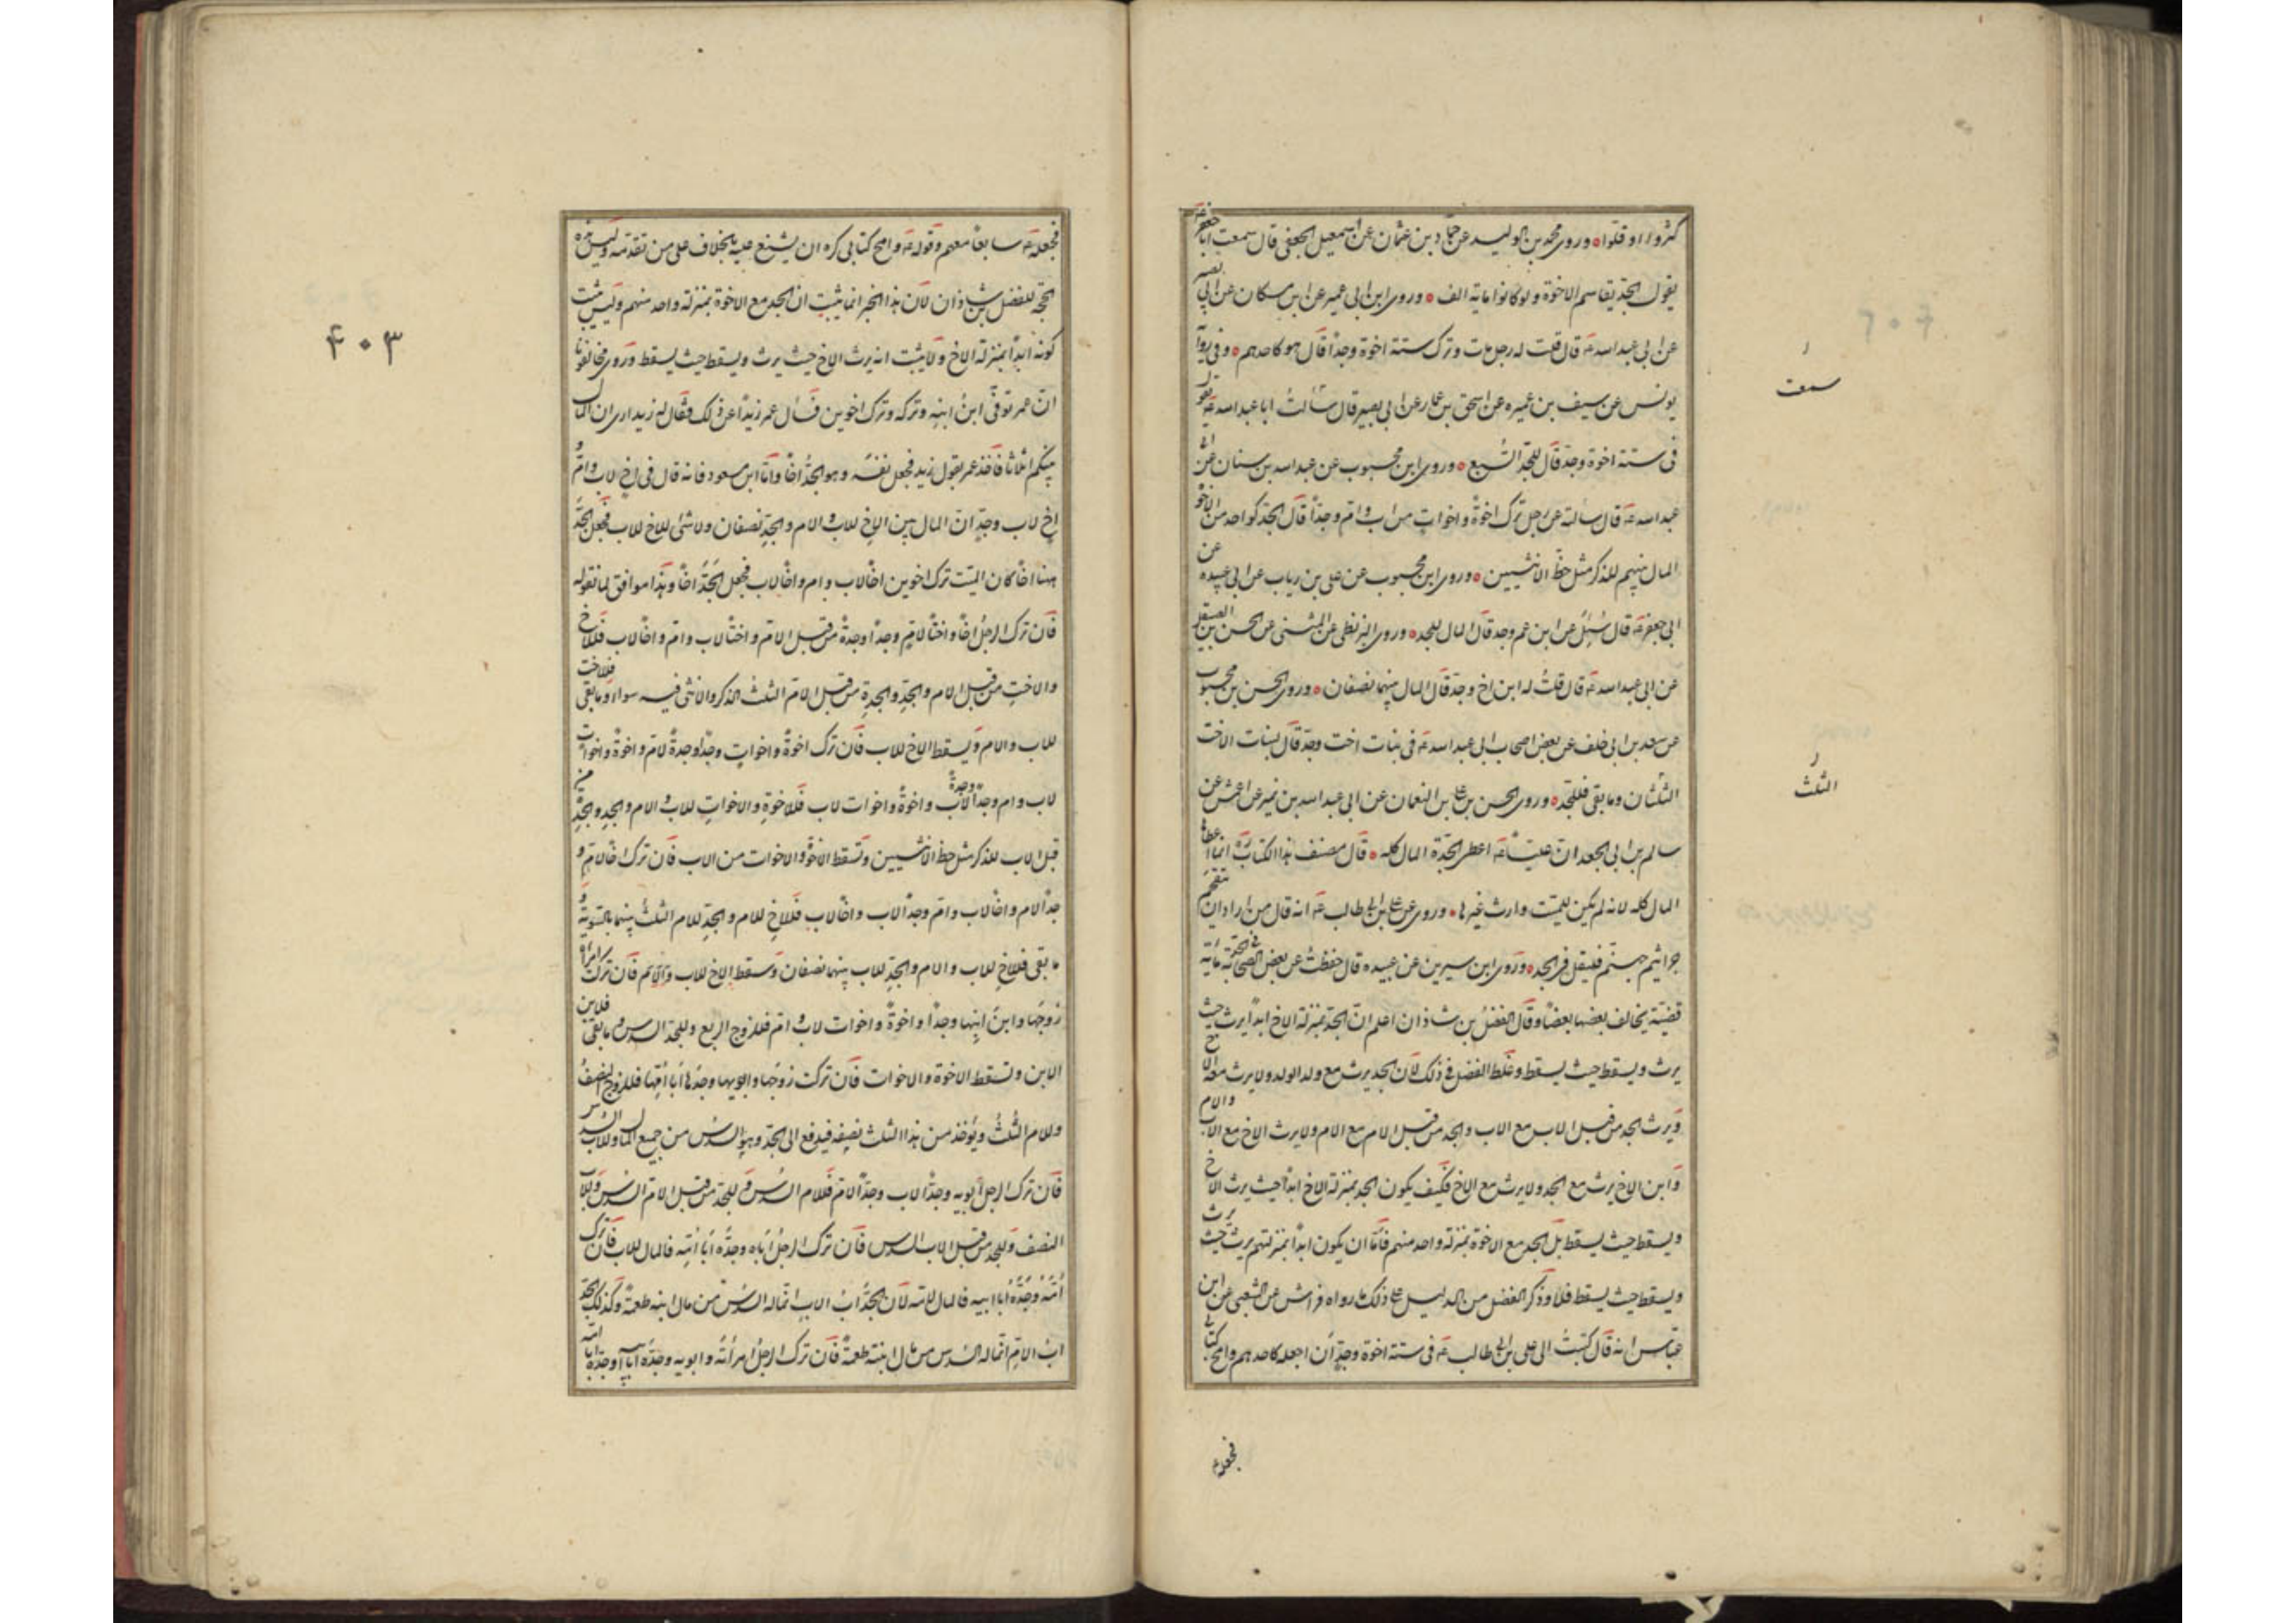 كثروا او قلوا وروى محمد بن الوليد عن حماد بن عثمان عن اسمعيل الجعفى قال سمعت ابا جعفر ع
يقول الجد يقاسم الاخوة ولو كانوا ماية الف وروى ابن ابى عمير عن ابن مسكان عن ابى بصير
عن ابى عبد الله ع قال قلت له رجل مات وترك ستة اخوة وجدا قال هو كاحدهم وفى رواية
يونس عن سيف بن عميره عن اسحق بن عمار عن ابى بصير قال سالت ابا عبد الله ع يقول
فى ستة اخوة وجد قال للجد السبع وروى ابن محبوب عن عبد الله بن سنان عن ابى
عبد الله ع قال سالته عن رجل ترك اخوة واخوات من اب وام وجدا قال الجد كواحد من الاخوة
المال بينهم للذكر مثل حظ الانثيين وروى ابن محبوب عن على بن رياب عن ابى عبيده عن
ابى جعفر ع قال سئل عن ابن عم وجد قال المال للجد وروى البزنطى عن المثنى عن الحسن بن الصيقل
عن ابى عبد الله ع قال قلت له ابن اخ وجد قال المال بينهما نصفان وروى الحسن بن محبوب
عن سعد بن ابى خلف عن بعض اصحاب ابى عبد الله ع فى بنات اخت وجد قال لبنات الاخت
الثلثان وما بقى فللجد وروى الحسن بن على بن النعمان عن ابى عبد الله بن نمير عن اعمش عن
سالم بن ابى الجعد ان عليا ع اعطى الجدة المال كله قال مصنف هذا الكتاب انما اعطاها
المال كله لانه لم يكن للميت وارث غيرها وروى عن على بن ابى طالب ع انه قال من اراد ان يتقحم
جراثيم جهنم فليقل فى الجد وروى ابن سيرين عن عبيده قال حفظت عن بعض الصحابة فى الجد مائة
قضية يخالف بعضها بعضا وقال الفضل بن شاذان اعلم ان الجد بمنزلة الاخ ابدا يرث حيث
يرث ويسقط حيث يسقط وغلط الفضل فى ذلك لان الجد يرث مع ولد الولد ولا يرث معه الاخ
ويرث الجد من قبل الاب مع الاب والجد من قبل الام مع الام ولا يرث الاخ مع الاب والام
وابن الاخ يرث مع الجد ولا يرث مع الاخ فكيف يكون الجد بمنزلة الاخ ابدا حيث يرث الاخ
ويسقط حيث يسقط بل الجد مع الاخوة بمنزلة واحد منهم فاما ان يكون ابدا بمنزلتهم يرث حيث يرث
ويسقط حيث يسقط فلا وذكر الفضل من الدليل على ذلك ما رواه فراس عن الشعبى عن ابن
عباس انه قال كتبت الى على بن ابى طالب ع فى ستة اخوة وجد ان اجعله كاحدهم وامح كتابى
فجعله
سمعت
الثلث
فجعله ع سابعا معهم وقوله ع وامح كتابى كره ان يشنع عليه بالخلاف على من تقدمه وليس هذه
الحجة للفضل بن شاذان لان هذا الخبر انما يثبت ان الجد مع الاخوة بمنزلة واحد منهم وليس يثبت
كونه ابدا بمنزلة الاخ ولا يثبت انه يرث الاخ حيث يرث ويسقط حيث يسقط وروى مخالفونا
ان عمر توفى ابن ابنه وتركه وترك اخوين فسال عمر زيدا عن ذلك فقال له زيد ارى ان المال
بينكم اثلاثا فاخذ عمر بقول زيد فجعل نفسه وهو الجد اخا واما ابن مسعود فانه قال فى اخ لاب وام و
اخ لاب وجد ان المال بين الاخ للاب والام والجد نصفان ولا شئ للاخ للاب فجعل الجد
هنا اخا كان الميت ترك اخوين اخا لاب وام واخا لاب فجعل الجد اخا وهذا موافق لما نقوله
فان ترك الرجل اخا واختا لام وجدا وجدة من قبل الام واختا لاب وام واخا لاب فللاخ
والاخت من قبل الام والجد والجدة من قبل الام الثلث الذكر والانثى فيه سواء وما بقى فللاخت
للاب والام ويسقط الاخ للاب فان ترك اخوة واخوات وجدا وجدة لام واخوة واخوات
لاب وام وجدا وجدة لاب واخوة واخوات لاب فللاخوة والاخوات للاب والام والجد والجدة من
قبل الاب للذكر مثل حظ الانثيين وتسقط الاخوة والاخوات من الاب فان ترك اخا لام و
جدا لام واخا لاب وام وجدا لاب واخا لاب فللاخ للام والجد للام الثلث بينهما بالسوية و
ما بقى فللاخ للاب والام والجد للاب بينهما نصفان وسقط الاخ للاب والام فان تركت امراة
زوجها وابن ابنها وجدا واخوة واخوات لاب وام فللزوج الربع وللجد السدس وما بقى فلابن
الابن وتسقط الاخوة والاخوات فان تركت زوجها وابويها وجدها ابا امها فللزوج النصف
وللام الثلث ويؤخذ من هذا الثلث نصفه فيدفع الى الجد وهو السدس من جميع المال وللاب السدس
فان ترك الرجل ابويه وجدا لاب وجدا لام فللام السدس وللجد من قبل الام السدس وللاب
النصف وللجد من قبل الاب السدس فان ترك الرجل اباه وجده ابا امه فالمال للاب فان ترك
امه وجده ابا ابيه فالمال لامه لان الجد اب الاب انما له السدس من مال ابنه طعمة وكذلك الجد
اب الام انما له السدس من مال ابنته طعمة فان ترك الرجل امراته وابويه وجده ابا ابيه وجده ابا امه
۴۰۳